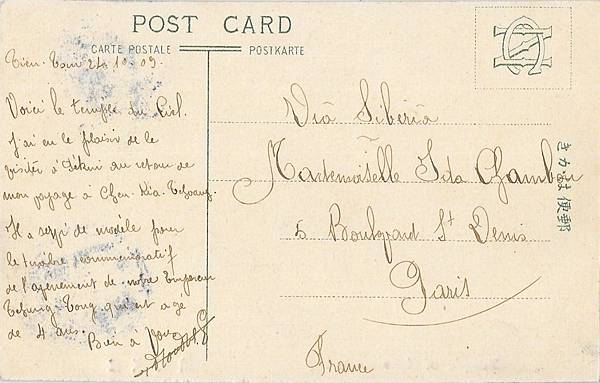 POST CARD
CARTE POSTALE
POSTKARTE
Tien-Tsin 24-10-09.
Voici le temple du Ciel.
J'ai eu le plaisir de le
visiter à Pékin au retour de
mon voyage à Chen-Kia-Tchoang.
Il a servi de modèle pour
le timbre commémoratif
de l'avènement de notre Empereur
qui est agé
de 4 ans.
Bien à vous
Viâ Siberia
Mademoiselle Ida Chambon
5 Boulevard St Denis
Paris
France
きかは便郵